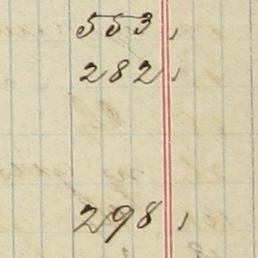 553,
282,
298,